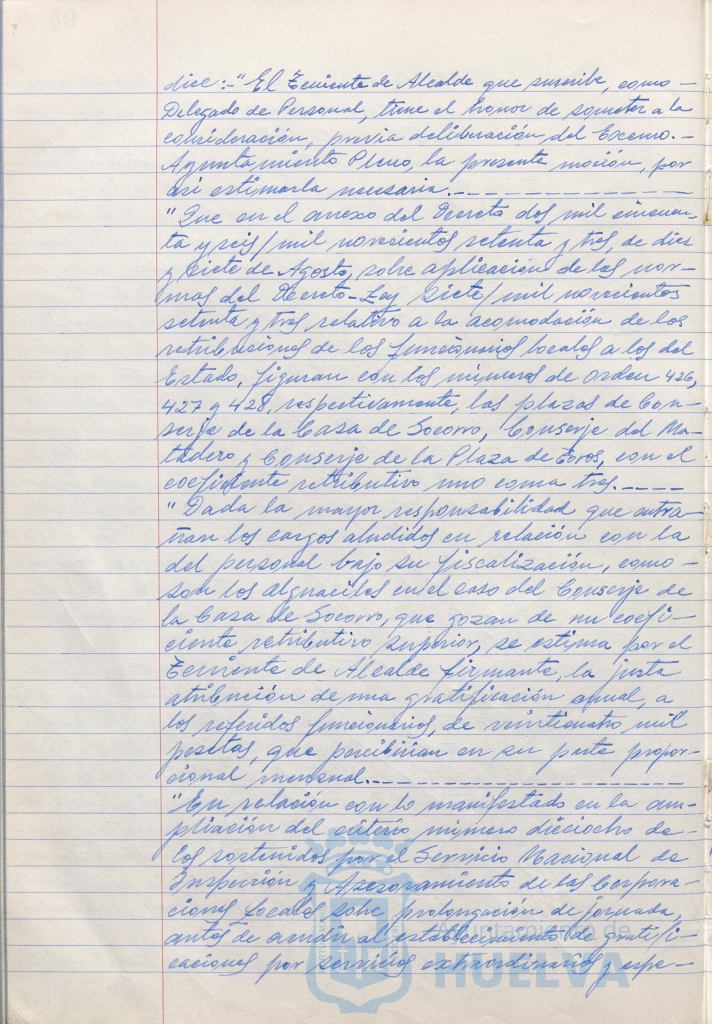 dice:-"El Teniente de Alcalde que suscribe, como-
Delegado de Personal, tiene el honor de someter a la
consideración, previa deliberación del Excmo.-
Ayuntamiento Pleno, la presente moción, por
así estimarla necesaria.----------
"Que en el anexo del Decreto dos mil cincuen-
ta y seis/mil novecientos setenta y tres, de diez
y siete de Agosto, sobre aplicación de las nor-
mas del Decreto-Ley siete/mil novecientos
setenta y tres relativo a la acomodación de las
retribuciones de los funcionarios locales a los del
Estado, figuran con los números de orden 426,
427 y 428, respectivamente, las plazas de Con-
serje de la Casa de Socorro, Conserje del Ma-
tadero y Conserje de la Plaza de Toros, con el
coeficiente retributivo uno coma tres.-----
"Dada la mayor responsabilidad que entra-
ñan los cargos aludidos en relación con la
del personal bajo su fiscalización, como-
son los alguaciles en el caso del Conserje de
la Casa de Socorro, que gozan de un coefi-
ciente retributivo superior, se estima por el
Teniente de Alcalde firmante, la justa
atribución de una gratificación anual, a
los referidos funcionarios, de veinticuatro mil
pesetas, que percibirían en su parte propor-
cional mensual.----------
"En relación con lo manifestado en la am-
pliación del criterio número dieciocho de-
los sostenidos por el Servicio Nacional de
Inspección y Asesoramiento de las Corpora-
ciones Locales sobre prolongación de jornada,
antes de acudir al establecimiento de gratifi-
caciones por servicios extraordinarios y espe-
Ayuntamiento de
HUELVA